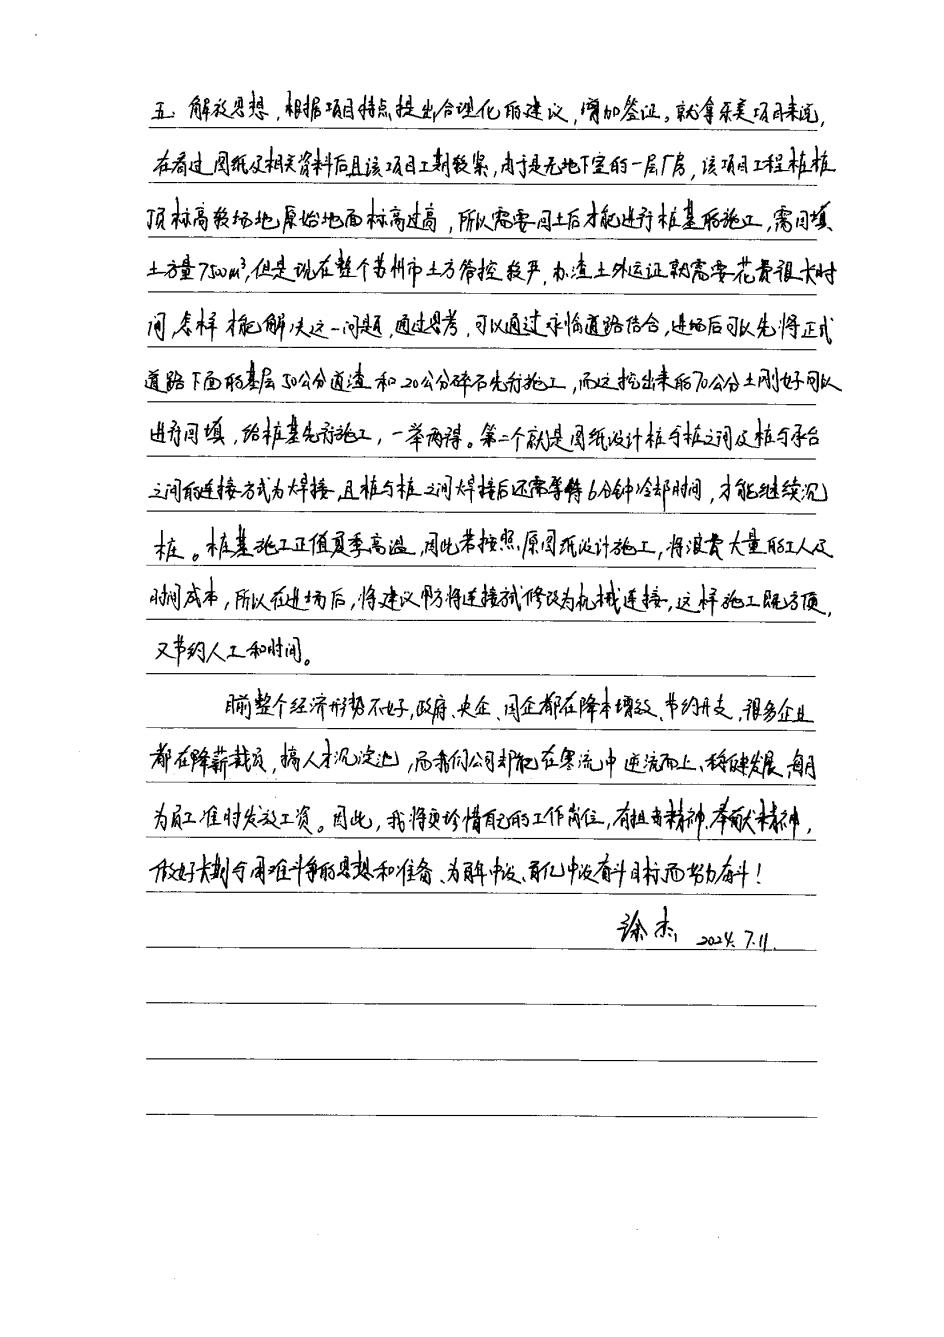 五、解放思想,根据项目特点提出合理化的建议,增加签证。就拿乐美项目来说,
在看过图纸及相关资料后且该项目工期较紧,由于是无地下室的一层厂房,该项目工程桩桩
顶标高较场地原始地面标高过高,所以需要回土后才能进行桩基的施工,需回填
土方量7500m³,但是现在整个苏州市土方管控较严,办渣土外运证就需要花费很大时
间,怎样才能解决这一问题,通过思考,可以通过永临道路结合,进场后可以先将正式
道路下面的基层50公分道渣和20公分碎石先行施工,而这挖出来的70公分土刚好可以
进行回填,给桩基先行施工,一举两得。第二个就是图纸设计桩与桩之间及桩与承台
之间的连接方式为焊接,且桩与桩之间焊接后还需等待6分钟冷却时间,才能继续沉
桩。桩基施工正值夏季高温,因此若按照原图纸设计施工,将浪费大量的工人及
时间成本,所以在进场后,将建议甲方将连接方式修改为机械连接,这样施工既方便,
又节约人工和时间。
目前整个经济形势不好,政府、央企、国企都在降本增效、节约开支,很多企业
都在降薪裁员,搞人才沉淀池,而我们公司却能在寒流中逆流而上、稳健发展,每月
为员工准时发放工资。因此,我将更珍惜自己的工作岗位,有担当精神、奉献精神,
做好长期与困难斗争的思想和准备、为百年中设、百亿中设奋斗目标而努力奋斗!
徐杰 2024.7.11.